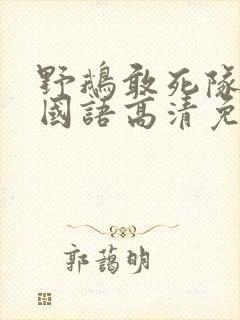 野鵝敢死隊
國語高清免
郭藹明